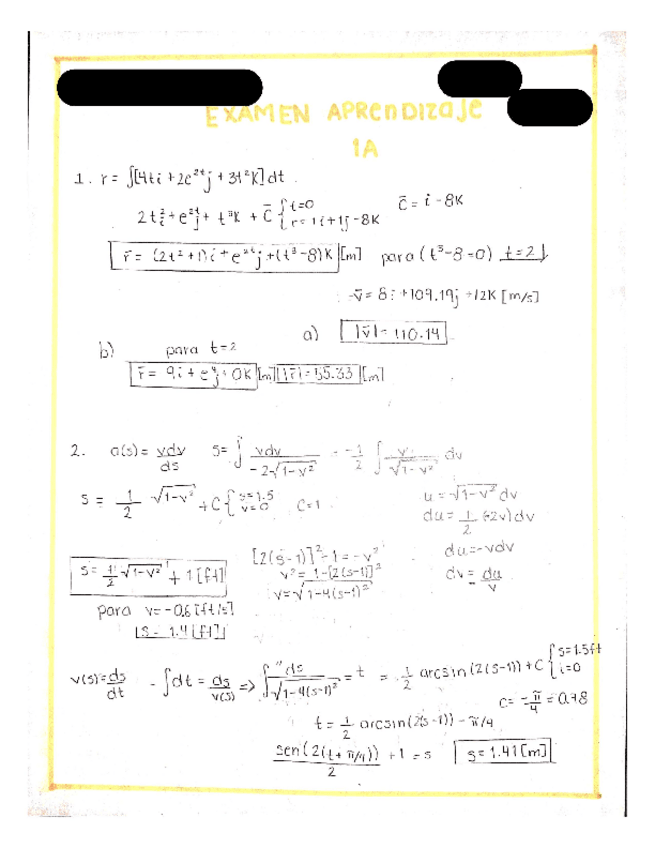 EXAMEN APRENDIZAJE
1A
1. r = ∫[4ti + 2e²ᵗj + 3t²K]dt.
2t²i + e²ᵗj + t³K + C̄ { t=0 r= 1i+1j-8K C̄ = i - 8K
r̄ = (2t²+1)i + e²ᵗj + (t³-8)K [m] para (t³-8=0) t=2
v̄ = 8i + 109.19j + 12K [m/s]
a) |v̄| = 110.14
b) para t=2
r̄ = 9i + e⁴j + 0K [m] |r̄| = 55.33 [m]
2. a(s) = vdv/ds S= ∫ vdv/-2√1-v² = -1/2 ∫ v/√1-v² dv
S = 1/2 √1-v² + C { s=1.5 v=0 C=1
u = √1-v² dv
du = 1/2 (-2v)dv
du = -vdv
dv = du/v
[2(s-1)]² - 1 = -v²
v² = 1-[2(s-1)]²
v = √1-4(s-1)²
S = 1/2 √1-v² + 1 [ft]
para v= -0.6 [ft/s]
S = 1.4 [ft]
v(s) = ds/dt - ∫dt = ds/v(s) => ∫ ds/√1-4(s-1)² = t = 1/2 arcsin(2(s-1)) + C { s=1.5ft i=0
c= -π/4 = 0.78
t = 1/2 arcsin(2(s-1)) - π/4
sen(2(t+π/4))/2 + 1 = s S= 1.41 [m]